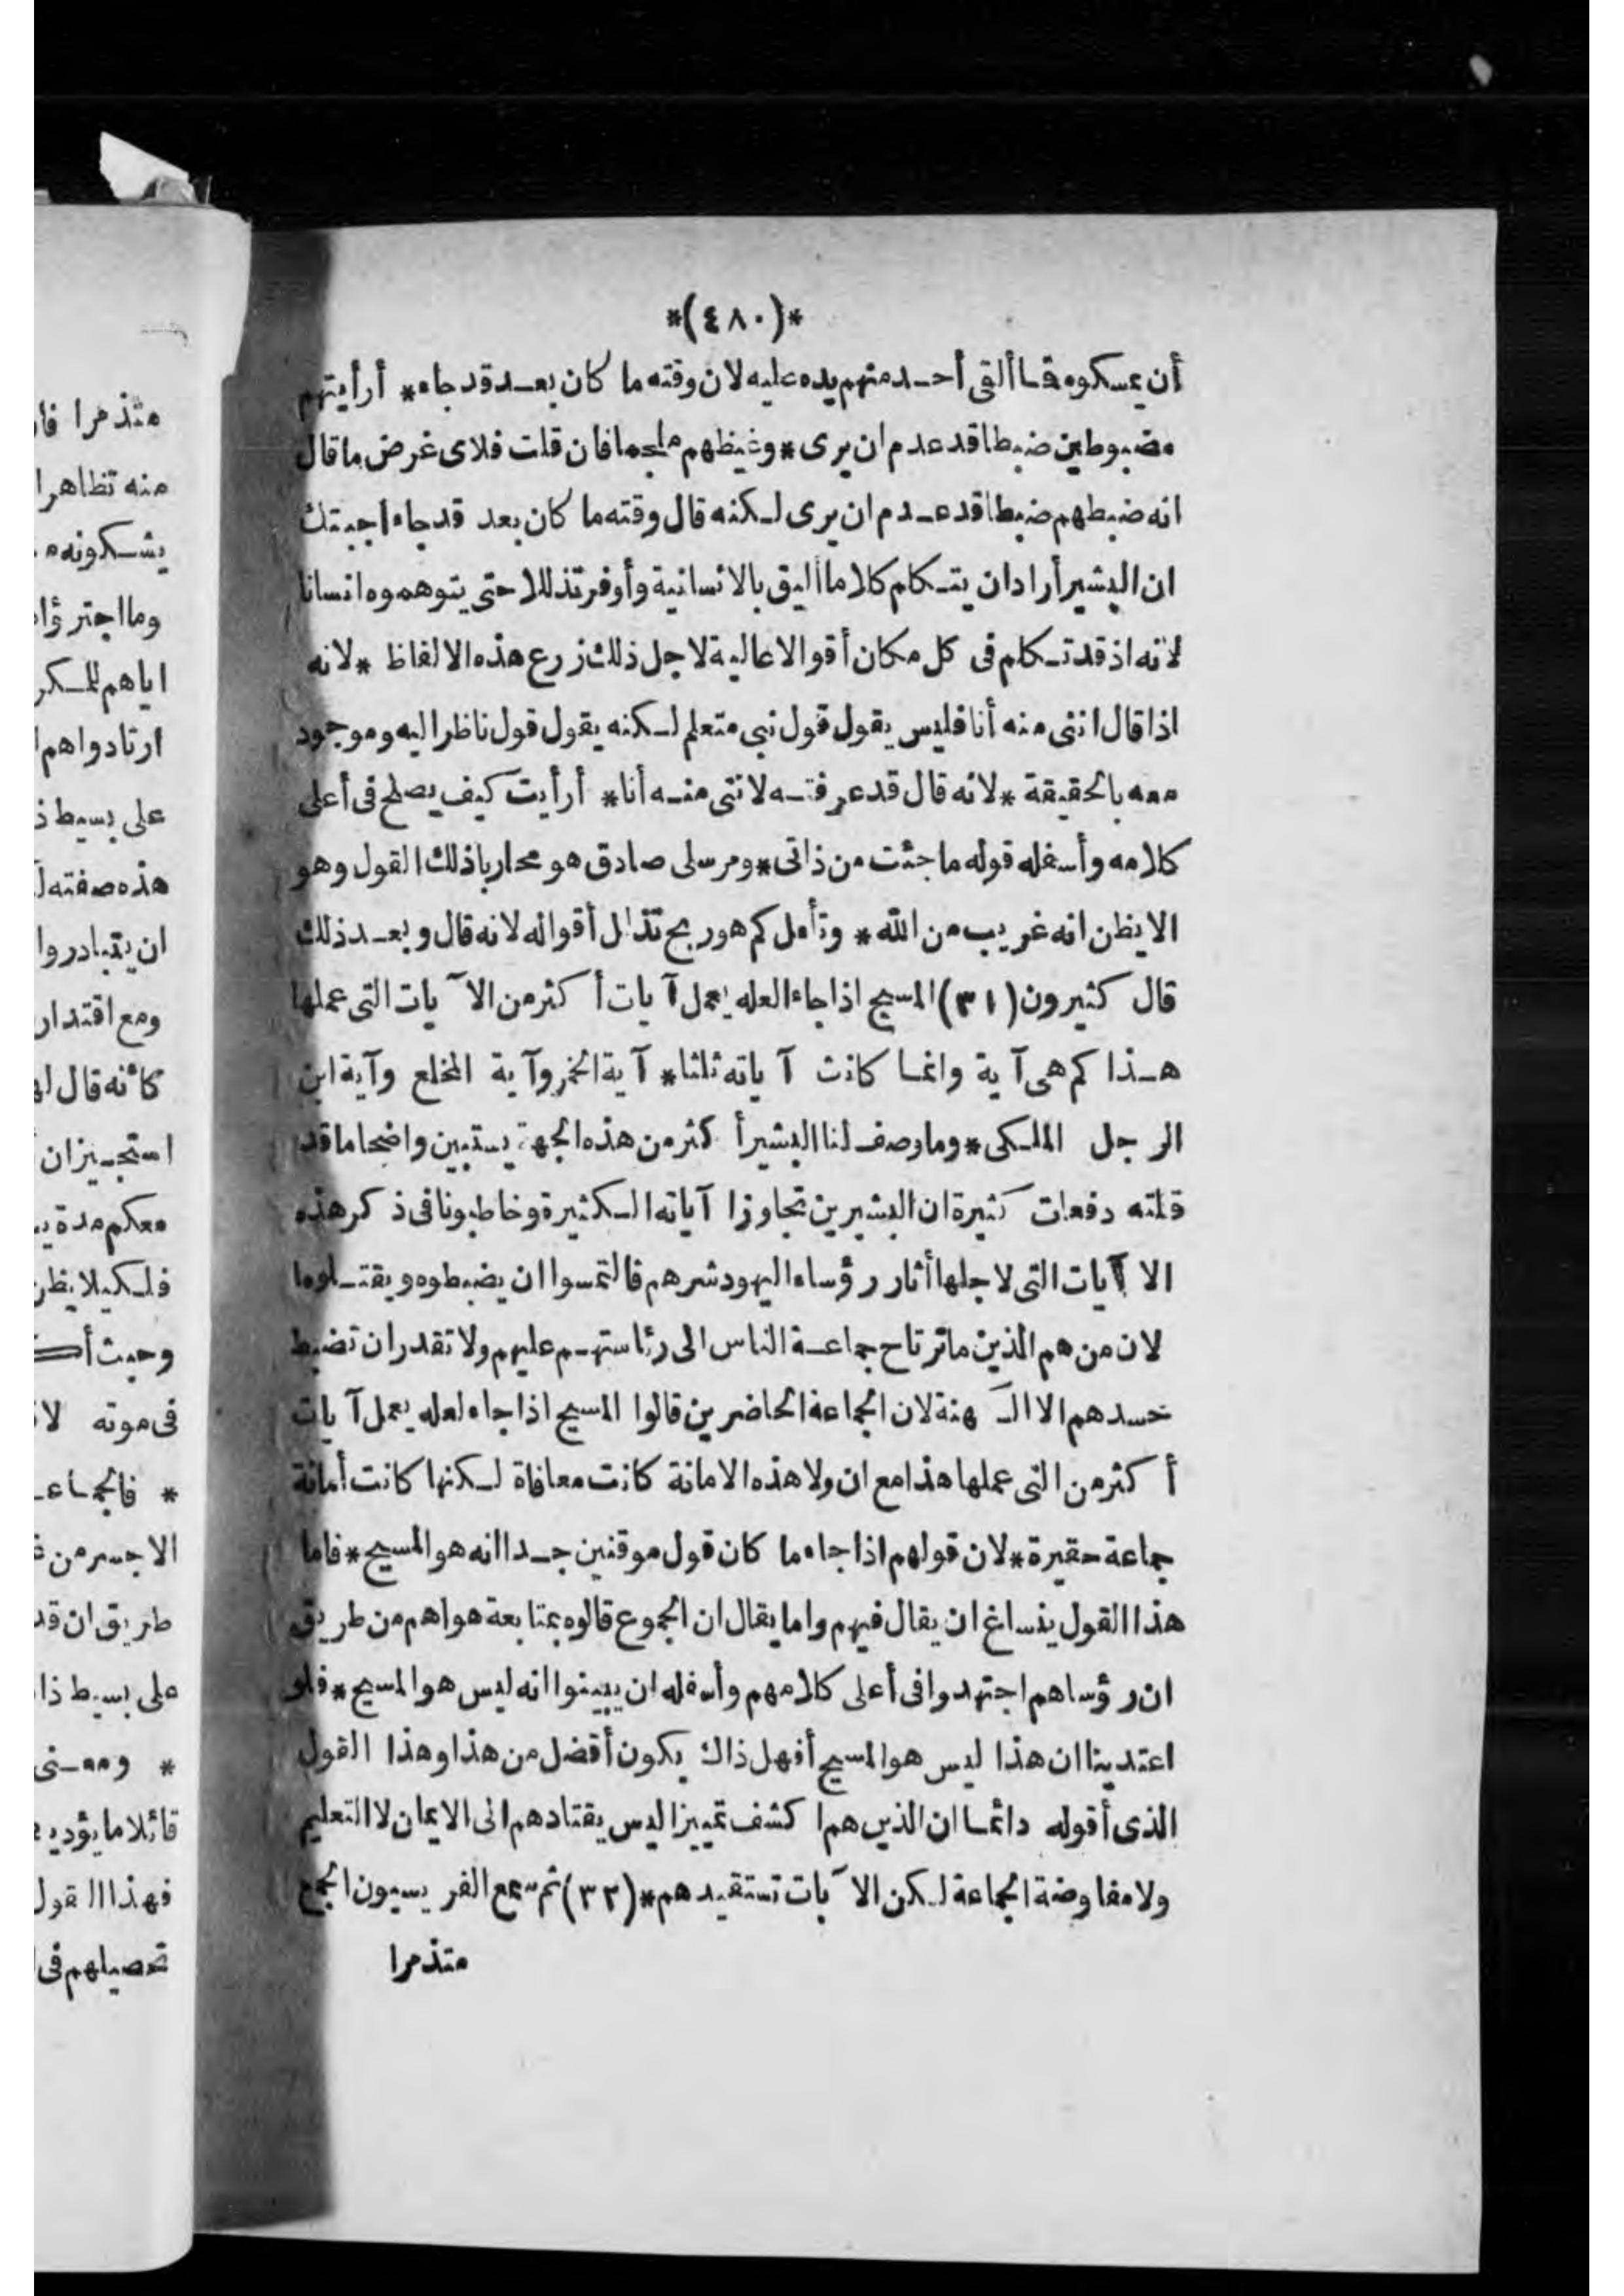 *(٤٨٠)*
أن يمسكوه فما ألقى أحد منهم يده عليه لان وقته ما كان بعد قد جاء* أرأيتهم
مضبوطين ضبطا قد عدم ان يرى* وغيظهم ملجما فان قلت فلاى غرض ما قال
انه ضبطهم ضبطا قد عدم ان يرى لكنه قال وقته ما كان بعد قد جاء اجبتك
ان البشير أراد ان يتكلم كلاما أليق بالانسانية وأوفر تذللا حتى يتوهموه انسانا
لانه اذ قد تكلم فى كل مكان أقوالا عالية لاجل ذلك زرع هذه الالفاظ* لانه
اذا قال اننى منه أنا فليس يقول قول نبى متعلم لكنه يقول قول ناظر اليه وموجود
معه بالحقيقة* لانه قال قد عرفته لاننى منه أنا* أرأيت كيف يصلح فى أعلى
كلامه وأسفله قوله ما جئت من ذاتى* ومرسلى صادق هو محاربا ذلك القول وهو
الا يظن انه غريب من الله* وتأمل كم هو ربح تذلل أقواله لانه قال وبعد ذلك
قال كثيرون (٣١) المسيح اذا جاء العله يعمل آيات أكثر من الآيات التى عملها
هذا كم هى آية وانما كانت آياته ثلثا* آية الخمر وآية المخلع وآية ابن
الرجل الملكى* وما وصف لنا البشير أكثر من هذه الجهة يستبين واضحا ما قد
قلته دفعات كثيرة ان البشيرين تجاوزا آياته الكثيرة وخاطبونا فى ذكر هذه
الآيات التى لاجلها أثار رؤساء اليهود شرهم فالتمسوا ان يضبطوه ويقتلوه
لان من هم الذين ما ترتاح جماعة الناس الى رئاستهم عليهم ولا تقدر ان تضبط
حسدهم الا الكهنة لان الجماعة الحاضرين قالوا المسيح اذا جاء لعله يعمل آيات
أكثر من التى عملها هذا مع ان ولا هذه الامانة كانت معافاة لكنها كانت أمانة
جماعة حقيرة* لان قولهم اذا جاء ما كان قول موقنين جدا انه هو المسيح* فاما
هذا القول ينساغ ان يقال فيهم واما يقال ان الجموع قالوه بمتابعة هواهم من طريق
ان رؤساهم اجتهدوا فى أعلى كلامهم وأسفله ان يبينوا انه ليس هو المسيح* فلو
اعتدينا ان هذا ليس هو المسيح أفهل ذاك يكون أفضل من هذا وهذا القول
الذى أقوله دائما ان الذين هم اكشف تمييزا ليس يقتادهم الى الايمان لا التعليم
ولا مفاوضة الجماعة لكن الآيات تستقيدهم* (٣٢) ثم سمع الفريسيون الجمع
متذمرا
متذمرا
منه تظاهرا
يشكونه
وما اجترؤا
اياهم
ارتادواهم
على بسيط
هذه صفته
ان يتبادروا
ومع اقتدار
كأنه قال
استجيزان
معكم مدة
فلكيلا يظن
وحيث
فى موته
*
الاجسر من
طريق ان قد
على بسيط
* ومعنى
قائلا ما
فهذا القول
تحصيلهم فى